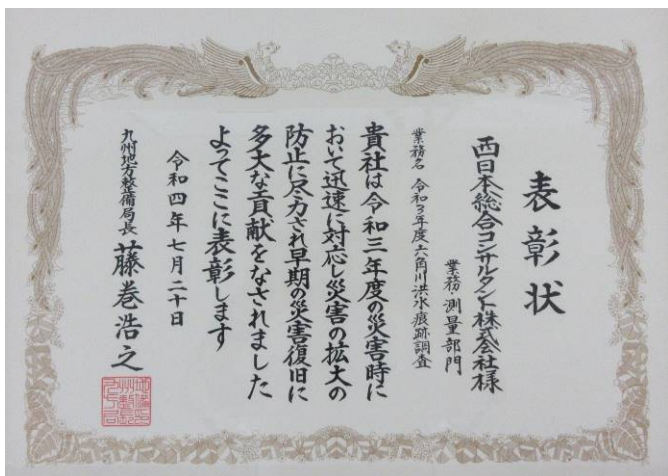 表彰状
西日本総合コンサルタント株式会社様
業務・測量部門
業務名 令和3年度六角川洪水痕跡調査
貴社は令和三年度の災害時に
おいて迅速に対応し災害の拡大の
防止に尽力され早期の災害復旧に
多大な貢献をなされました
よってここに表彰します
令和四年七月二十日
九州地方整備局長 藤巻浩之